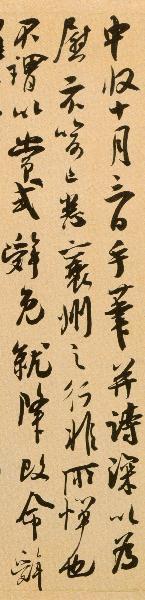 中收十月三日手筆并詩深以為
慰示喻已悉襄州之行非所憚也
不謂以嘗辭免就降改命辭